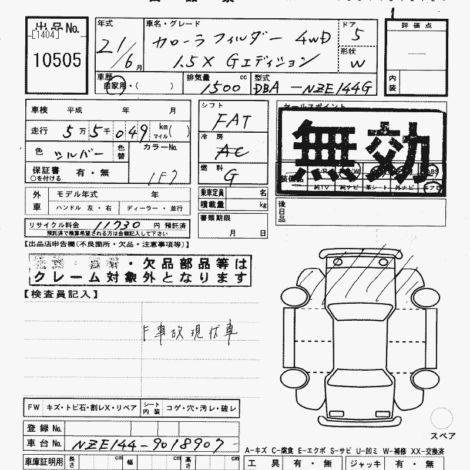 出品No.
[1404]
10505
年式
21/6
車名・グレード
カローラフィルダー 4WD
1.5X Gエディション
ドア
5
形状
W
評価点
内装
車歴
自家用・( )
排気量
1500 cc
型式
DBA-NZE144G
車検 平成 年 月
走行 5万5千049 km (マイル)
色 シルバー
色替
カラーNo.
1F7
保証書 有・無
○を付ける
シフト
FAT
冷房
AC
燃料
G
セールスポイント
無効
外車 モデル年式 年
ハンドル 左・右 ディーラー・並行
乗車定員 名
積載量 kg
書類期限
月 日
後日品
リサイクル料金 11730 円 預託済
預託済で換算希望される方は金額記入して下さい
【出品店申告欄(不良箇所・欠品・注意事項等)】
・欠品部品等は
クレーム対象外となります
【検査員記入】
事故現状車
FW キズ・トビ石・割レX・リペア
シート内装 コゲ・穴・汚レ・破レ
スペア
登録No.
車台No. NZE144-9018907
A-キズ C-腐食 E-エクボ S-サビ U-凹ミ W-補修 XX-交換済
車庫証明用 長さ cm 幅 cm 高さ cm
工具 有・無 ジャッキ 有・無